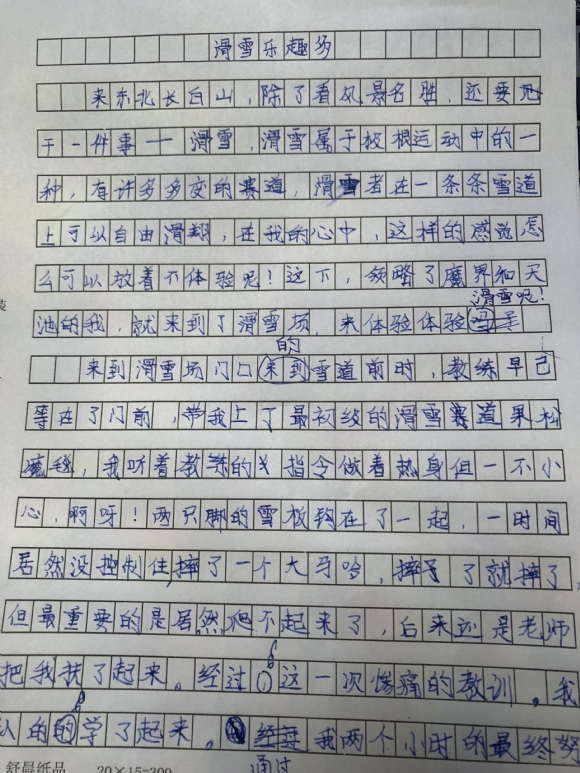 滑雪乐趣多
来东北长白山，除了看风景名胜，还要见
于一件事——滑雪，滑雪属于极限运动中的一
种，有许多多变的赛道，滑雪者在一条条雪道
上可以自由滑翔，在我的心中，这样的感觉怎
么可以放着不体验呢！这下，领略了魔界和天
滑雪呢！
池的我，就来到了滑雪场，来体验体验
的
来到滑雪场门口来到雪道前时，教练早已
等在了门前，带我上了最初级的滑雪赛道果松
魔毯，我听着教练的指令做着热身但一不小
心，啊呀！两只脚的雪板钩在了一起，一时间
居然没控制住，摔了一个大马哈，摔了就摔了
但最重要的是居然爬不起来了，后来还是老师
把我扶了起来。经过这一次惨痛的教训，我
认的的学了起来。我两个小时的最终努
通过
舒晨纸品 20×15=300